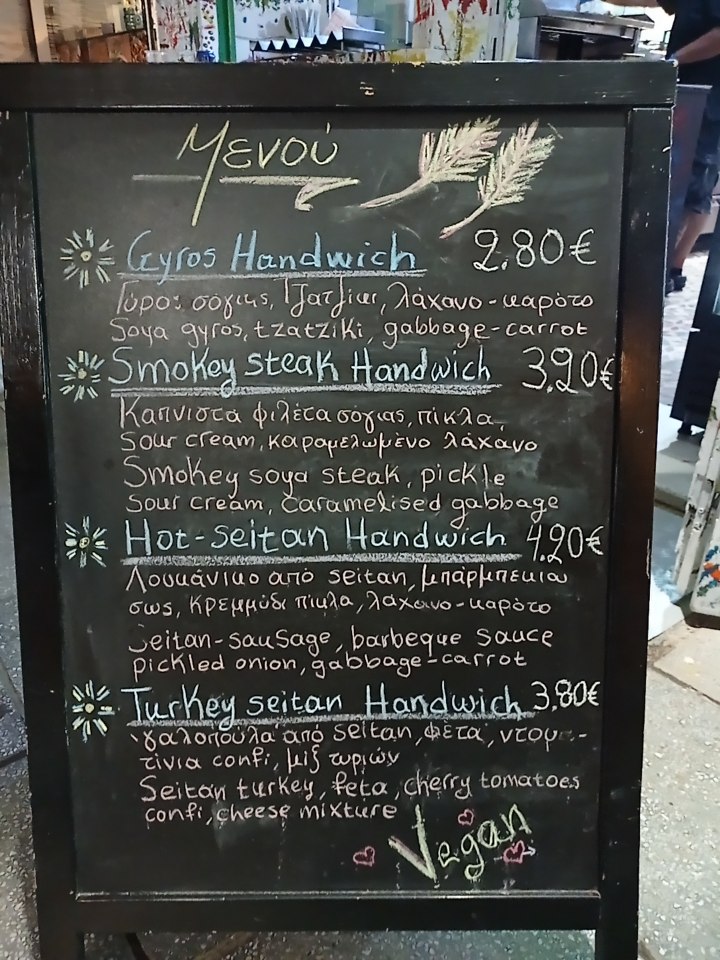 Μενού
Gyros Handwich 2.80€
Γύρος σόγιας, Τζατζίκι, λάχανο-καρότο
Soya gyros, tzatziki, gabbage-carrot
Smokey steak Handwich 3.20€
Καπνιστα φιλέτα σόγιας, πίκλα
sour cream, καραμελωμένο λάχανο
Smokey soya steak, pickle
sour cream, caramelised gabbage
Hot-seitan Handwich 4.20€
Λουκάνικο από seitan, μπαρμπεκιου
σως, κρεμμύδι πίκλα, λάχανο-καρότο
Seitan-sausage, barbeque sauce
pickled onion, gabbage-carrot
Turkey seitan Handwich 3.80€
γαλοπούλα από seitan, φέτα, ντομα-
τίνια confi, μιξ τυριών
Seitan turkey, feta, cherry tomatoes
confi, cheese mixture
Vegan